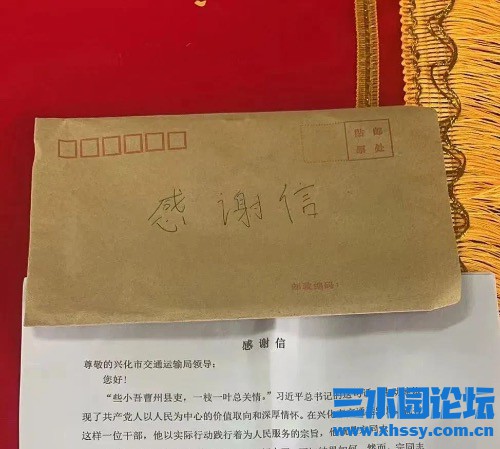 贴邮
票处
感谢信
邮政编码:
感谢信
尊敬的兴化市交通运输局领导:
您好!
“些小吾曹州县吏,一枝一叶总关情。”习近平总书记
现了共产党人以人民为中心的价值取向和深厚情怀。在兴化市
这样一位干部,他以实际行动践行着为人民服务的宗旨,
三水园论坛
www.xhssy.com